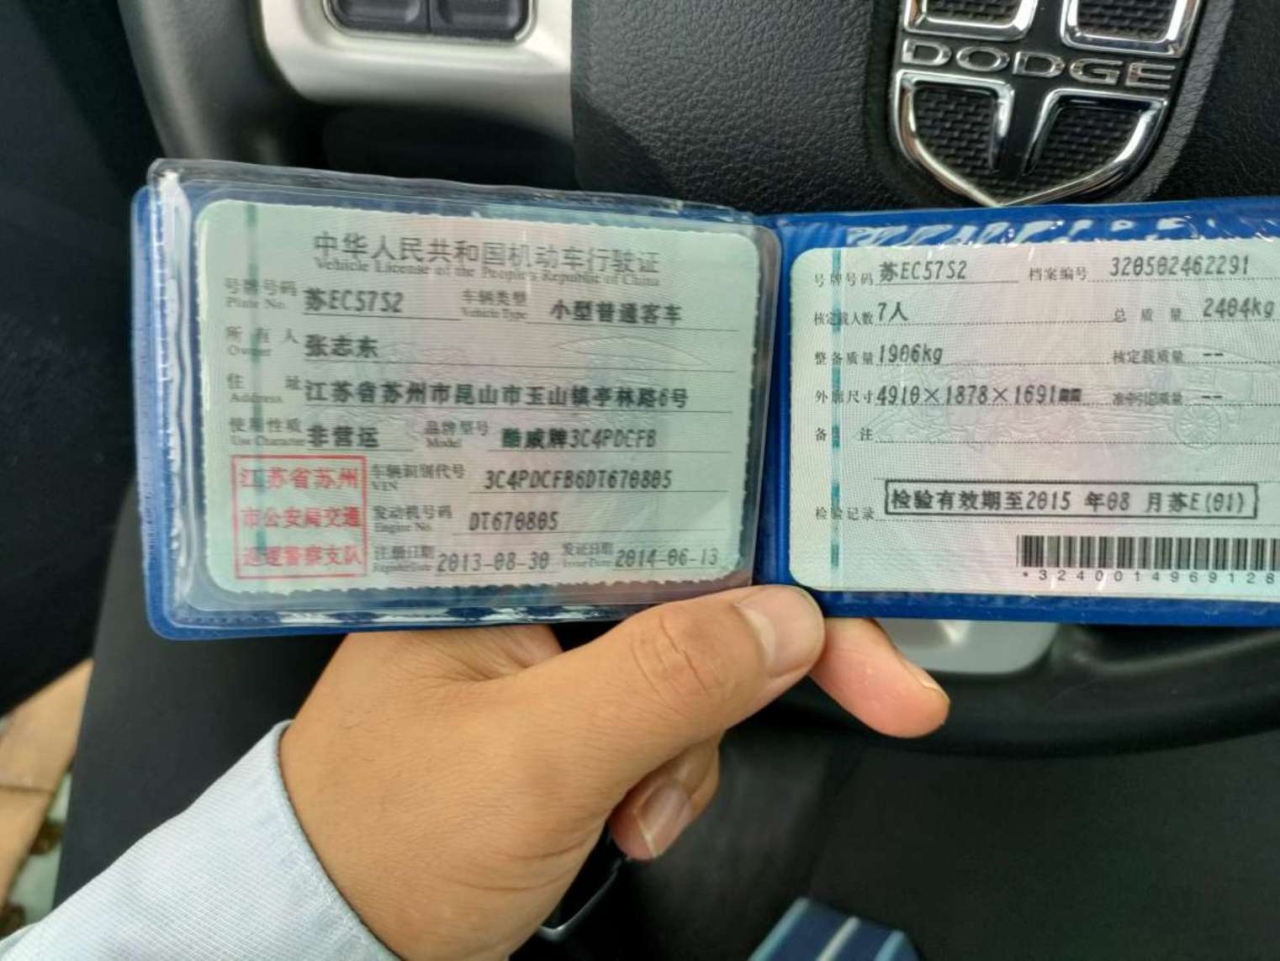 DODGE
中华人民共和国机动车行驶证
Vehicle License of the People's Republic of China
号牌号码 苏EC57S2 车辆类型 小型普通客车
Plate No. Vehicle Type
所有人 张志东
Owner
住址 江苏省苏州市昆山市玉山镇亭林路6号
Address
使用性质 非营运 品牌型号 酷威牌3C4PDCFB
Use Character Model
江苏省苏州
市公安局交通
巡逻警察支队
车辆识别代号 3C4PDCFB6DT670805
VIN
发动机号码 DT670805
Engine No.
注册日期 2013-08-30 发证日期 2014-06-13
Register Date Issue Date
号牌号码 苏EC57S2 档案编号 320502462291
核定载人数 7人 总质量 2404kg
整备质量 1906kg 核定载质量 --
外廓尺寸 4910×1878×1691mm 准牵引总质量 --
备注
检验记录 检验有效期至2015 年08 月苏E(01)
*3240014969128